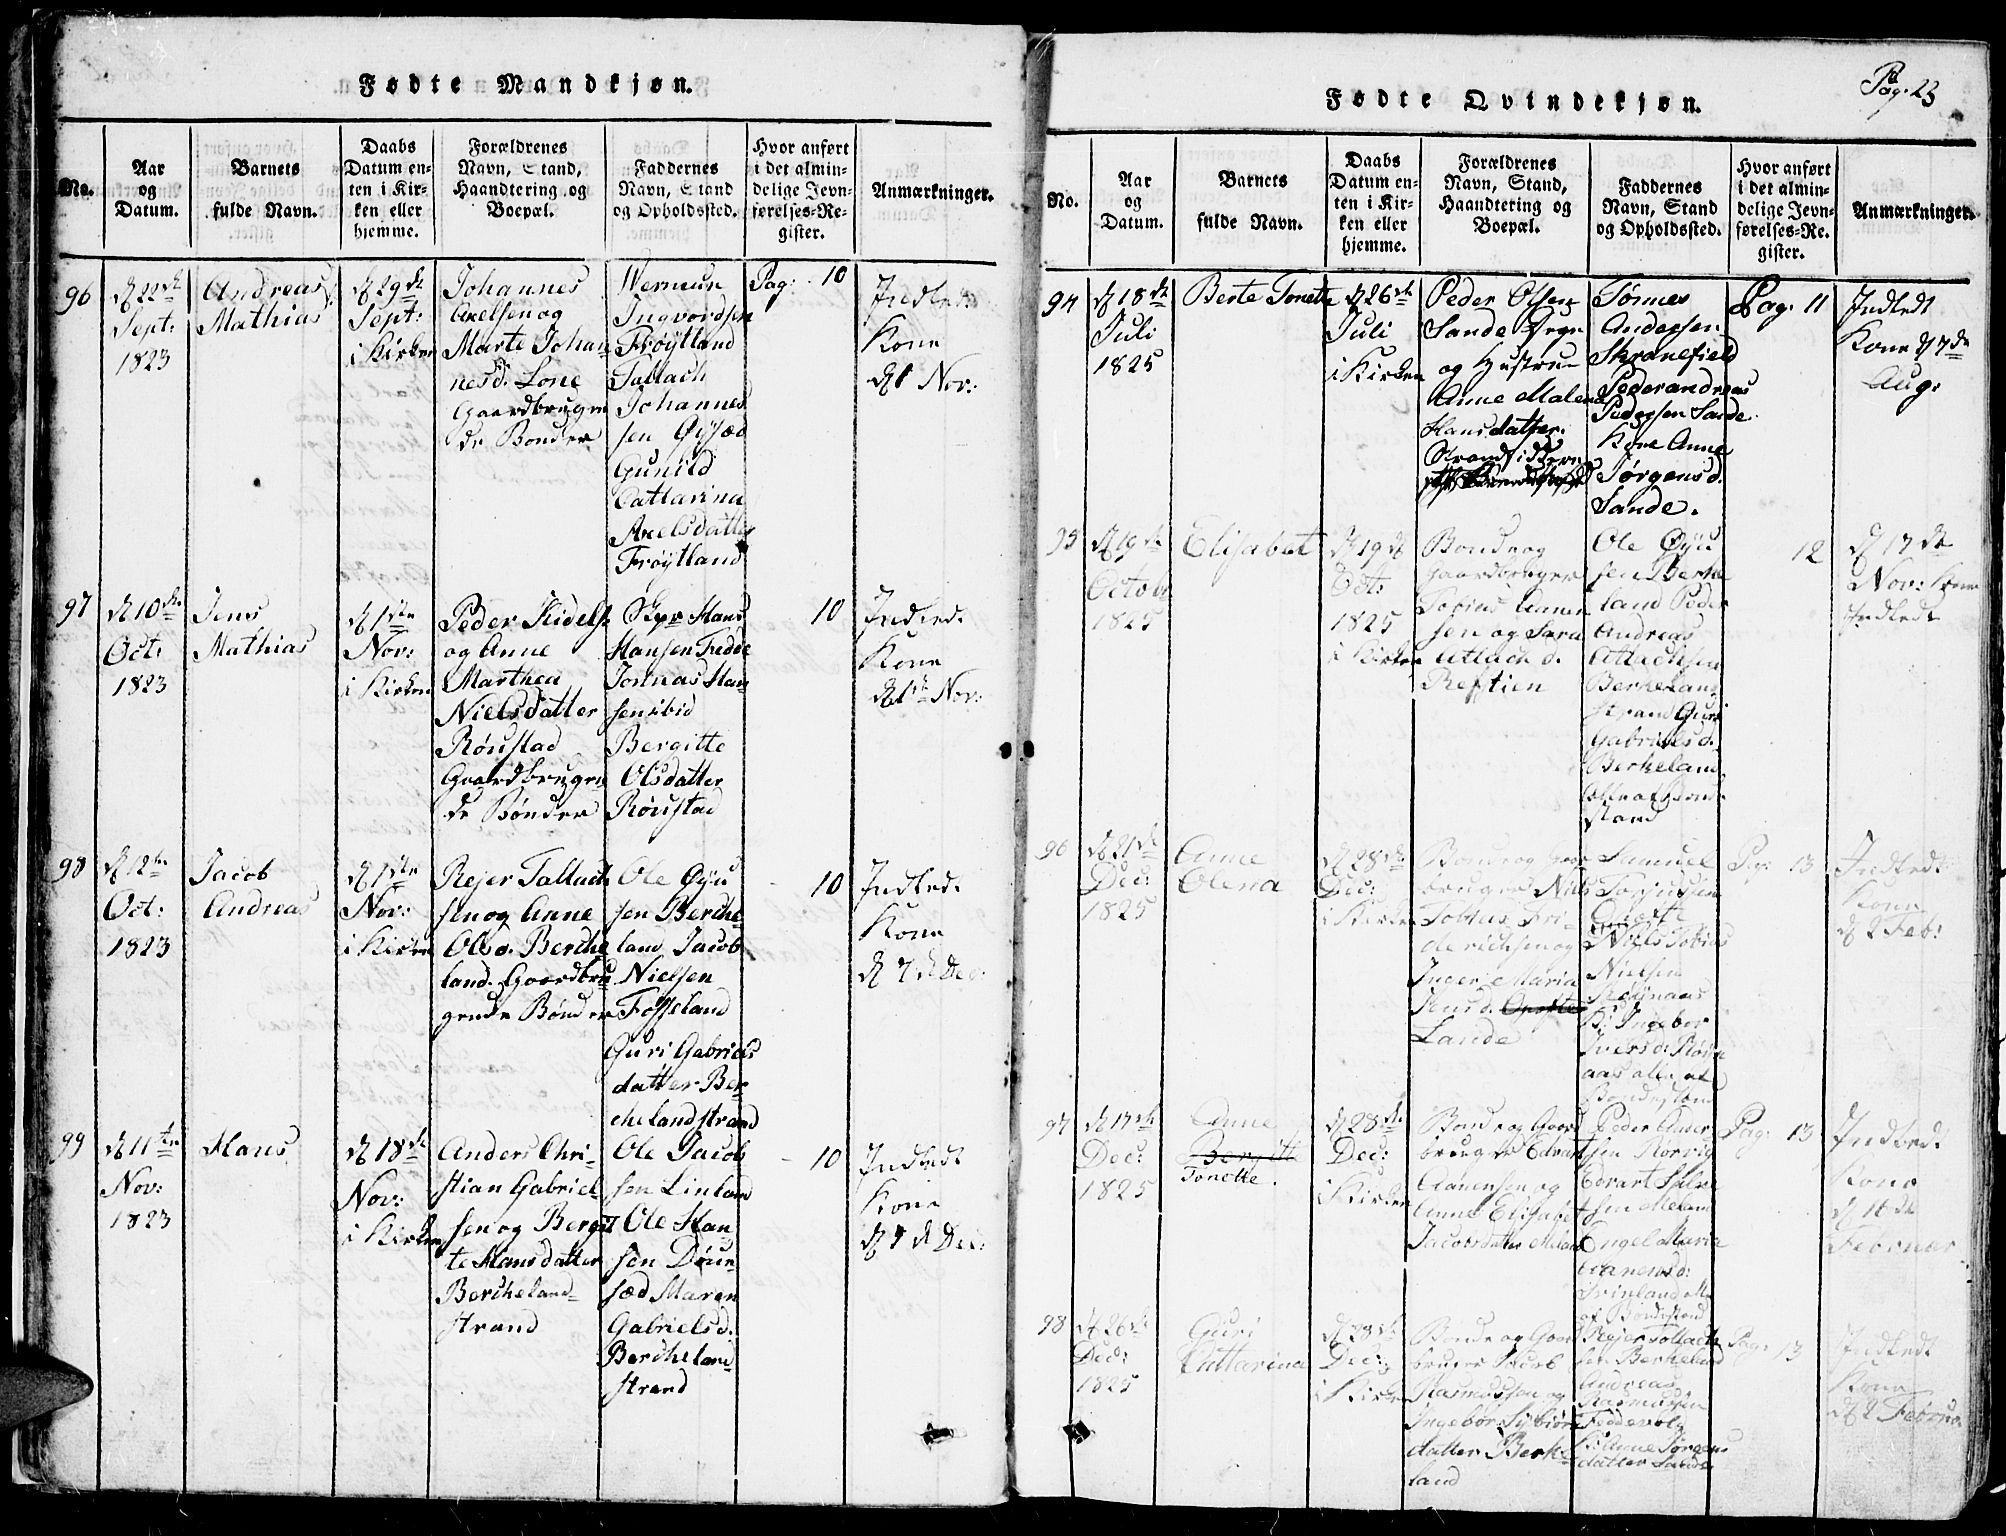 Fødte Mandkjøn.
No.
Aar
og
Datum.
Barnets
fulde Navn.
Daabs
Datum en-
ten i Kir-
ken eller
hjemme.
Forældrenes
Navn, Stand,
Haandtering og
Boepæl.
Faddernes
Navn, Stand
og Opholdssted.
Hvor anført
i det almin-
delige Jevn-
førelses-Re-
gister.
Anmærkninger.
96
d 22de
Sept:
1823
Andreas
Mathias
d 29de
Sept:
i Kirken
Johannes
Axelsen og
Marte Johan
nesd. Lone
Gaardbrugen
de Bønder
Wermun
Ingvordsen
Frøytland
Tallach
Johannes
sen Øysæd
Gunild
Cattarina
Axelsdatter
Frøytland
Pag: 10
Indledt
Kone
d 1 Nov:
97
d 10de
Oct:
1823
Jens
Mathias
d 1ste
Nov:
i Kirken
Peder Kidels
og Anne
Marthea
Nielsdatter
Rønstad
Gaardbrugen
de Bønder
Hans
Hansen Fedde
Jonnas Han
sen ibid
Bergitte
Olsdatter
Rønstad
10
Indled.
Kone
d 1 Nov:
98
d 12te
Oct:
1823
Jacob
Andreas
d 1ste
Nov:
i Kirken
Rejer Tallach
sen og Anne
Olsd. Berche
land. Gaardbru
gende Bønder
Ole Øyu
sen Berche
land Jacob
Nielsen
Fosseland
Guri Gabriels
datter Ber
chelandstrand
10
Indled.
Kone
d 7de Dec:
99
d 11te
Nov:
1823
Hans
d 18de
Nov:
i Kirken
Anders Chri-
stian Gabriel
sen og Bergit
te Hansdatter
Bercheland-
strand
Ole Jacob
sen Linland
Ole Han
sen Døun
sæd Maren
Gabrielsd.
Bercheland
strand
10
Indledt
Kone
d 7 d Dec:
Pag. 23
Fødte Qvindekjøn.
No.
Aar
og
Datum.
Barnets
fulde Navn.
Daabs
Datum en-
ten i Kir-
ken eller
hjemme.
Forældrenes
Navn, Stand,
Haandtering og
Boepæl.
Faddernes
Navn, Stand
og Opholdssted.
Hvor anført
i det almin-
delige Jevn-
førelses-Re-
gister.
Anmærkninger.
94
d 18de
Juli
1825
Berte Tonette
d 26de
Juli
i Kirken
Peder Olsen
Sande
og Hustrue
Anne Malena
Hansdatter.
Strandsiddere
Tønnes
Andersen
Skranefield
Pederandreas
Pedersen Sande
Kone Anne
Jørgensd.
Sande.
Pag: 11
Indledt
Kone d 7de
Aug:
95
d 19de
Octobr
1825
Elisabet
d 19d
Oct:
1825
i Kirken
Bonde og
Gaardbruger
Tobias Aanen
sen og Sara
Atlach d.
Reftien
Ole Øyu
sen Berke
land Peder
Andreas
Atlachsen
Berkeland
strand Guri
Gabrielsd.
Berkeland
alle af Bonde
stand
12
d 17de
Nov: Kone
Indledt
96
d 21de
Dec:
1825
Anne
Olena
d 28de
Dec:
i Kirken
Bonde og Gaar
bruger Niels
Tobias Fri-
derichsen og
Inger Maria
Knusd.
Lande
Samuel
Torjussen
Niels Tobias
Nielsen
Ingebor
Iversd.
aas alle af
Bondestand
Pag: 13
Indledt
Kone
d 2 Feb:
97
d 17de
Dec:
1825
Anne
Bergitte
Tonette.
d 28de
Dec:
i Kirken
Bonde og Gaar
bruger Edvart
Aanensen og
Anne Elisabet
Jacobsdatter Meland
Peder Anders
sen Rørvig
Edvart Salve
sen Meland
Engel Maria
Aanensd:
af Bondestand
Pag: 13
Indledt
Kone
d 16de
Februar
98
d 26de
Dec:
1825
Guri
Cattarina
d 28de
Dec:
i Kirken
Bonde og Gaar
bruger Jacob
Rasmussen og
Ingebor
datter Berke
land
Rejer Tollach
sen Berkeland
Andreas
Rasmussen
Feddevolg
Anne Jørgens
datter Sande
Pag: 13
Indledt
Kone
d 2 Februar